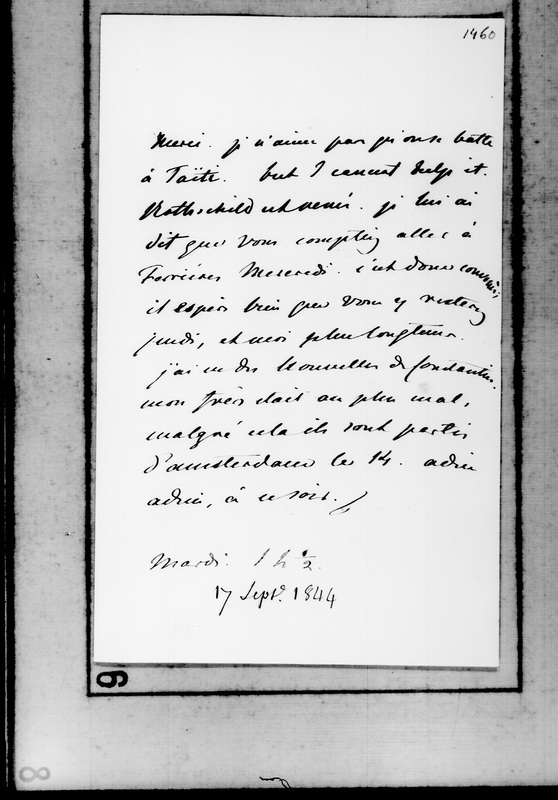 1460
Merci. je n'aime pas qu'on se batte
à Taïti. but I cannot help it.
Rothschild est venu. je lui ai
dit que vous comptiez aller à
Ferrières Mercredi. c'est donc convenu,
il espère bien que vous y resterez
jeudi, et moi plus longtems.
j'ai eu des nouvelles de Constantin.
mon frère était au plus mal,
malgré cela ils sont partis
d'amsterdam le 14. adieu
adieu, à ce soir.
Mardi. 1 h ½.
17 Septe. 1844
9
8